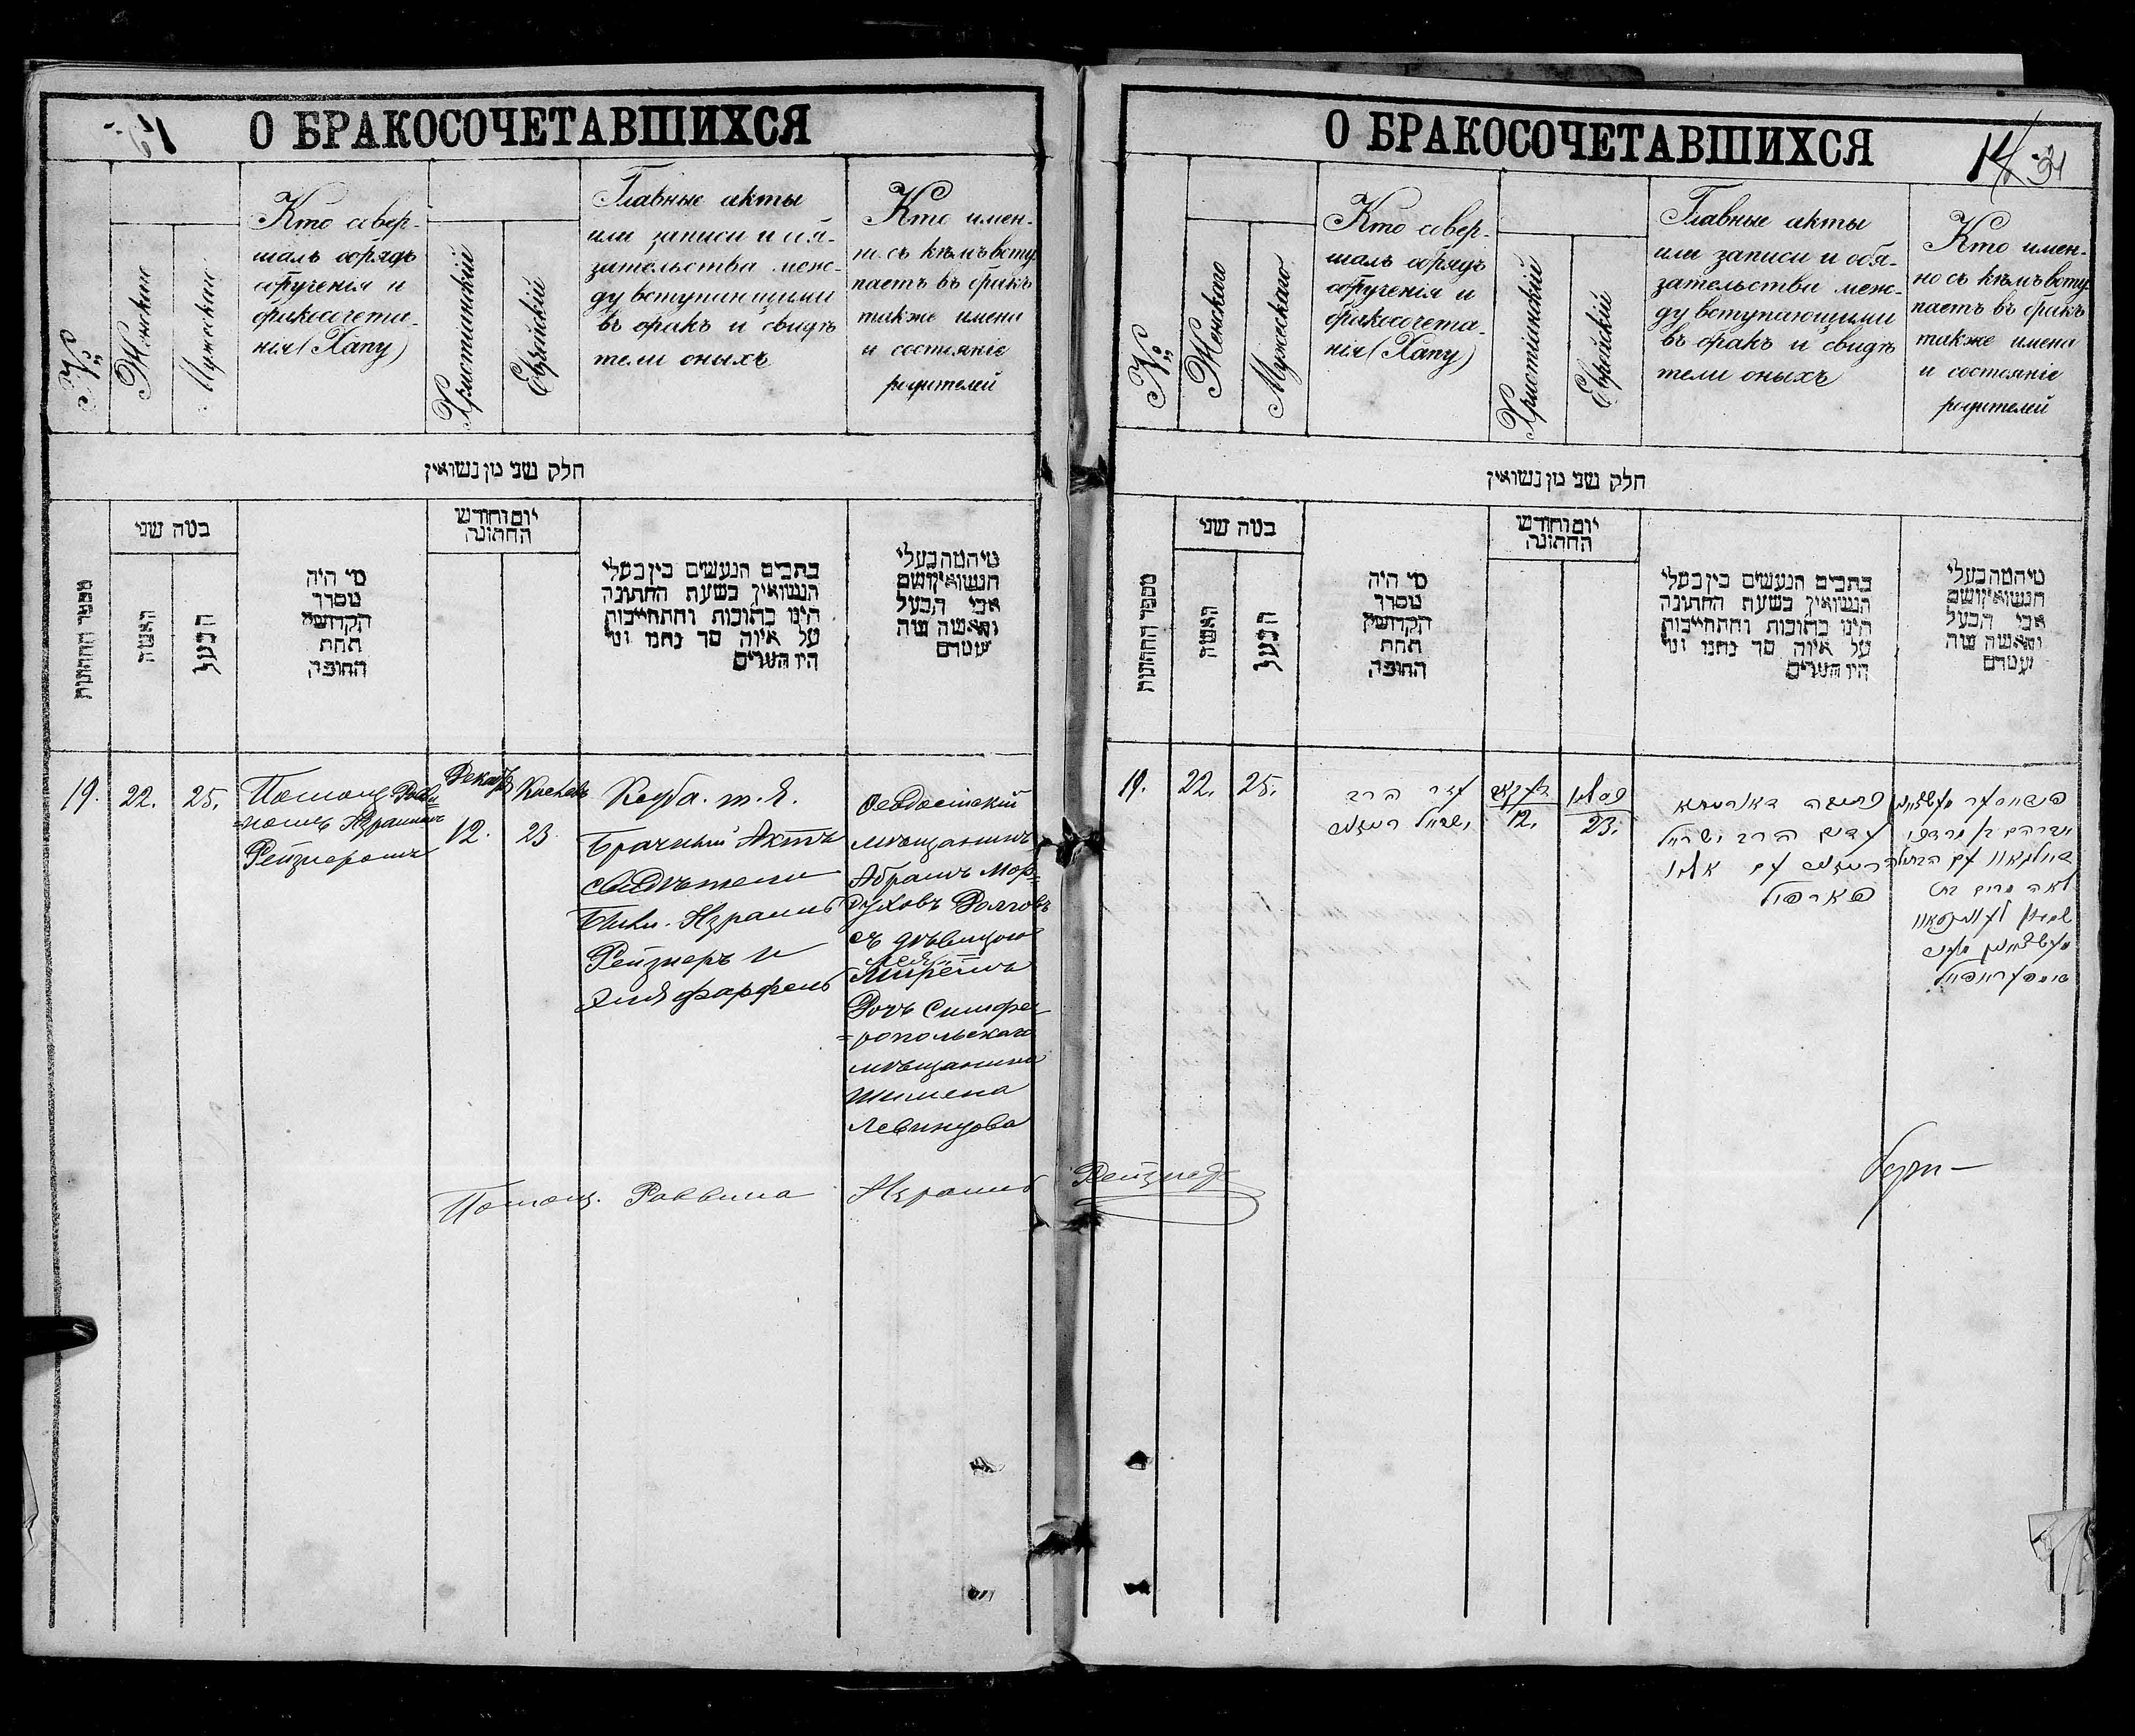 О БРАКОСОЧЕТАВШИХСЯ
№
Женскаго
Мужескаго
Кто совер-
шалъ обрядъ
обрученія и
бракосочета-
нія (Хапу)
Христіанскій
Еврейскій
Главные акты
или записи и обя-
зательства меж-
ду вступающими
въ бракъ и свидѣ
тели оныхъ
Кто имен-
но съ кѣмъ всту
паетъ въ бракъ
также имена
и состояніе
родителей
חלק שני מן נשואין
מספר החתונות
כמה שני
האשה
הבעל
מי היה
מסדר
הקדושין
תחת
החופה
יום וחודש
החתונה
כתבים הנעשים בין בעלי
הנשואין בשעת החתונה
היינו כתובות והתחייבות
על איזה סך נתנו ומי
היו העדים
מי המה בעלי
הנשואין ושם
אבי הבעל
והאשה ומה
עמדם
19.
22.
25.
Помощ. Рави-
=номъ Израилемъ
Рейзнеромъ
Декабр
12.
23.
Кетуба. т. е.
Брачный Актъ
свидѣтели
были. Израиль
Рейзнеръ и
Эля Фарфель
Ѳеодосійскій
мѣщанинъ
Абрамъ Мор=
духовъ Долговъ
съ дѣвицою
Леей
Миреймъ
Дочь Симфе
=ропольскаго
мѣщанина
Шимена
Левинцова
Помощ. Раввина Израиль Рейзнеръ
О БРАКОСОЧЕТАВШИХСЯ
14
31
№
Женскаго
Мужескаго
Кто совер-
шалъ обрядъ
обрученія и
бракосочета-
нія (Хапу)
Христіанскій
Еврейскій
Главные акты
или записи и обя-
зательства меж-
ду вступающими
въ бракъ и свидѣ
тели оныхъ
Кто имен-
но съ кѣмъ всту
паетъ въ бракъ
также имена
и состояніе
родителей
חלק שני מן נשואין
מספר החתונות
כמה שני
האשה
הבעל
מי היה
מסדר
הקדושין
תחת
החופה
יום וחודש
החתונה
כתבים הנעשים בין בעלי
הנשואין בשעת החתונה
היינו כתובות והתחייבות
על איזה סך נתנו ומי
היו העדים
מי המה בעלי
הנשואין ושם
אבי הבעל
והאשה ומה
עמדם
19.
22.
25.
הרב
ישראל
12.
כסלו
23.
עדים הרב ישראל
אברהם בן מרדכי
לאה מרים בת